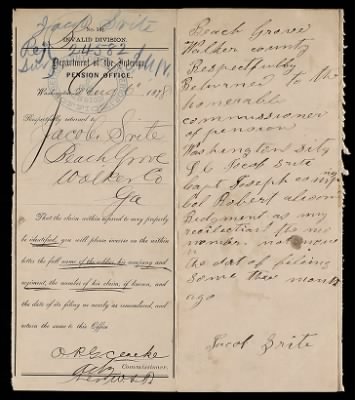 Jacob Srite
INVALID DIVISION.
Rej 24582
Department of the Interior,
PENSION OFFICE,
Washington, Aug 6 1878
Respectfully returned to
Jacob Srite
Beach Grove
Walker Co
Ga
That the claim within referred to may properly
be identified, you will please inverse on the within
letter the full name of the soldier, his company and
regiment, the number of his claim, if known, and
the date of its filing as nearly as remembered, and
return the same to this Office
Commissioner.
Beach Grove
Walker county
Respectfully
Returned to the
honerable
commissioner
of pension
Washington Sity
Jacob Srite
Capt Joseph
Col Robert
as my
the
number not
the dat of fileing
some thee month
ago
Jacob Srite